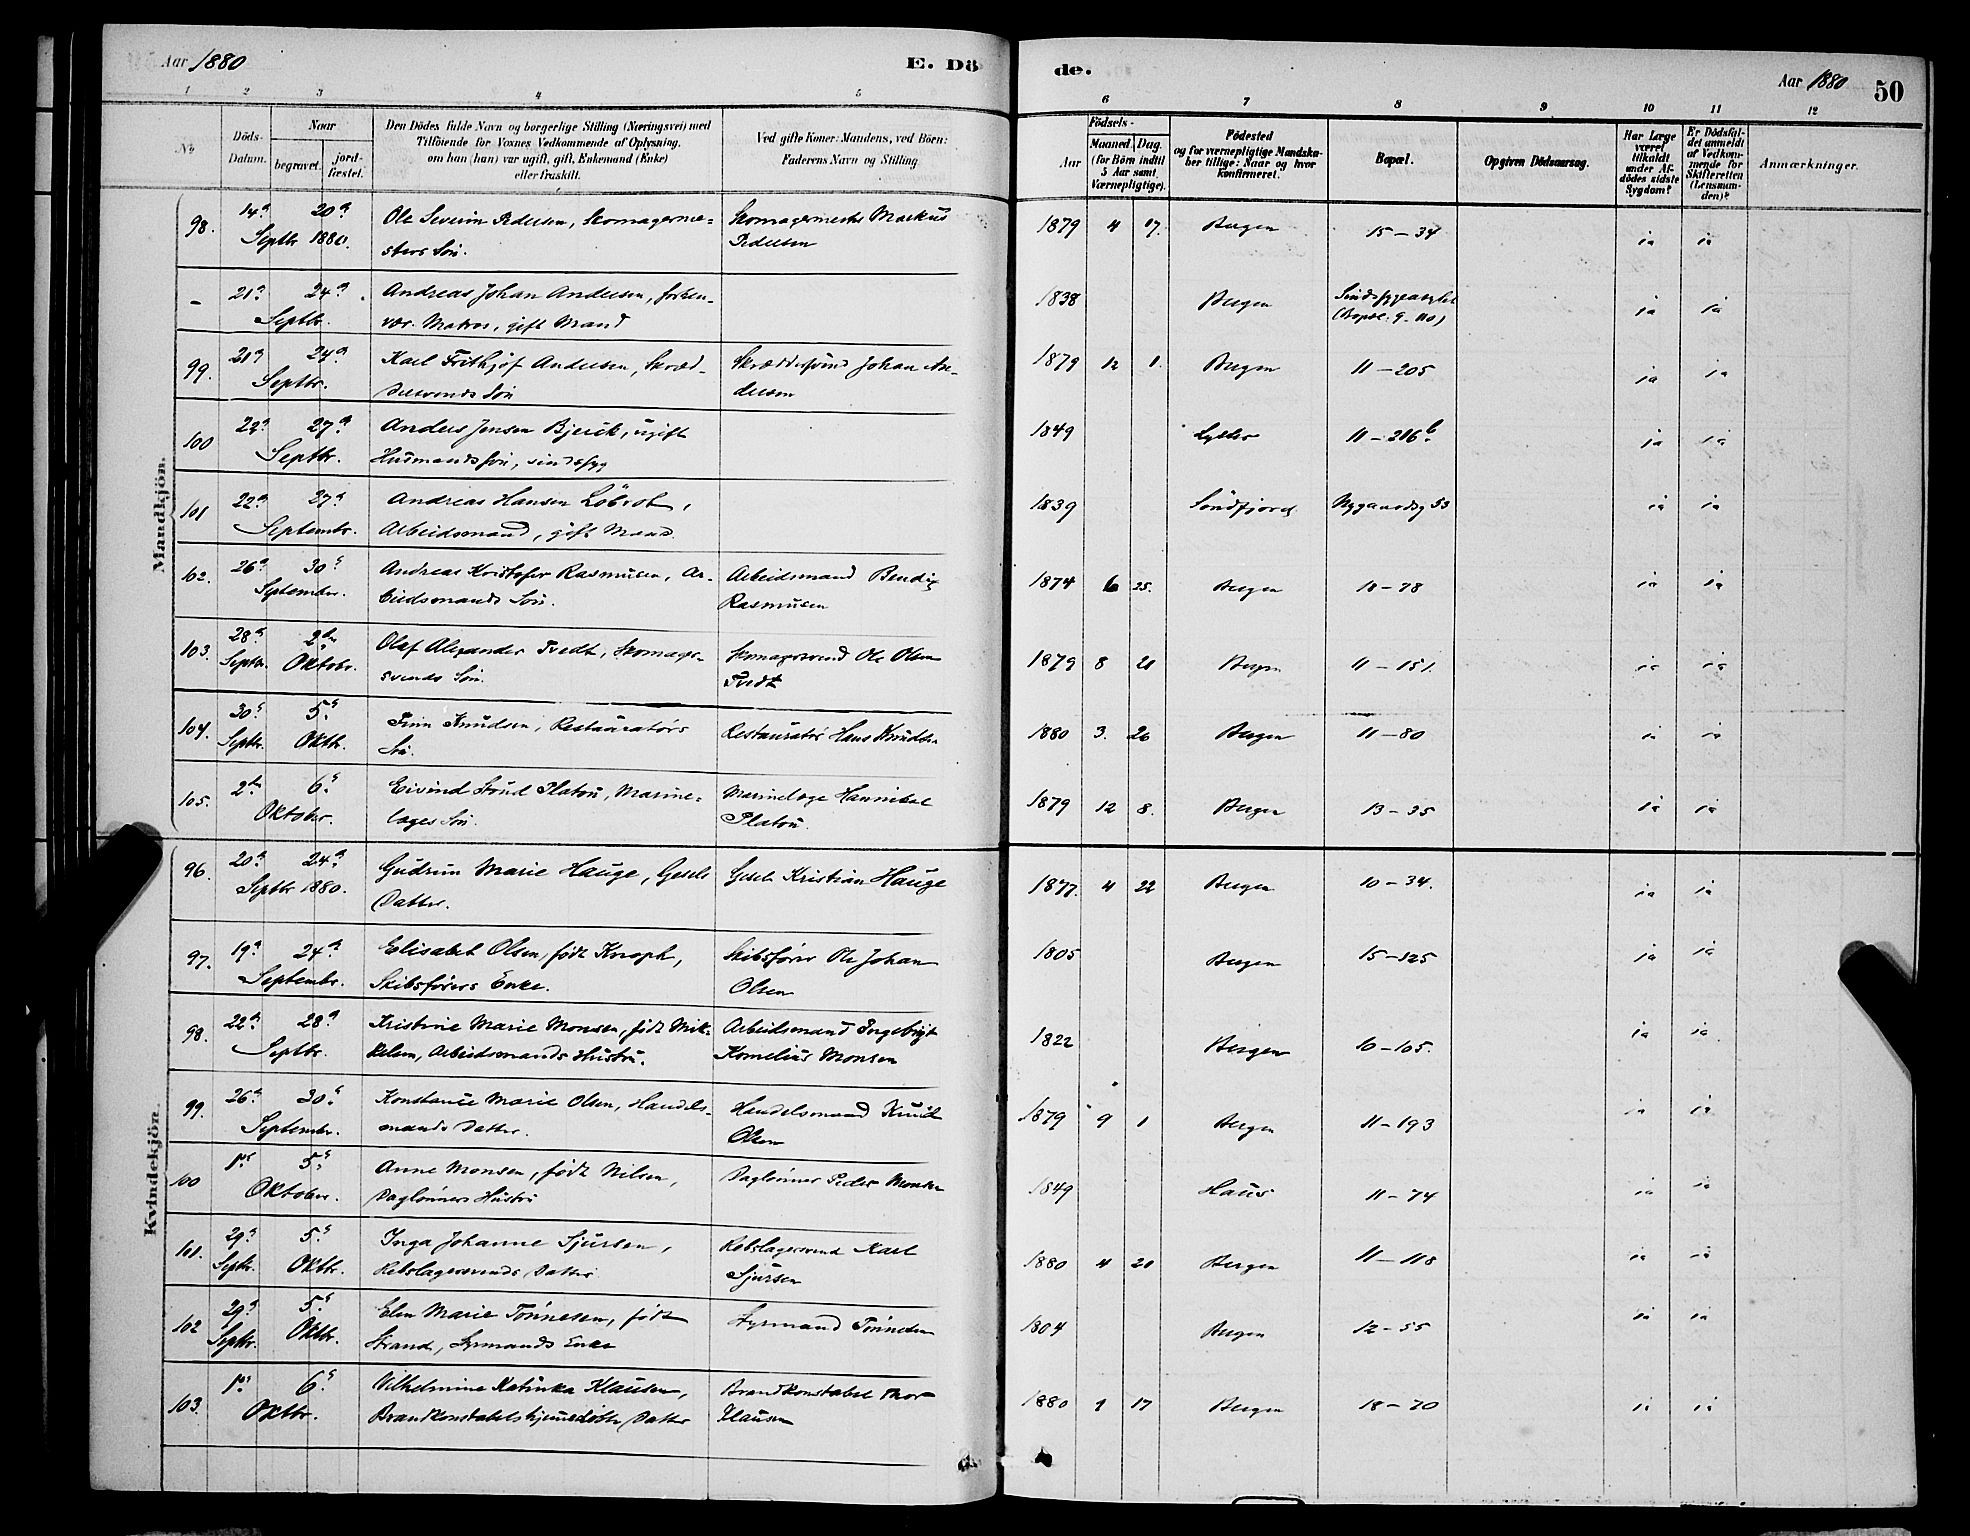 Aar 1880
E. Dö
de.
Aar 1880
50
1 2 3 4 5 6 7 8 9 10 11 12
No
Döds-
Datum.
Naar
begravet.
jord-
fæstet.
Den Dödes fulde Navn og borgerlige Stilling (Næringsvei) med
Tilföiende for Voxnes Vedkommende af Oplysning,
om han (hun) var ugift, gift, Enkemand (Enke)
eller fraskilt.
Ved gifte Koner: Mandens, ved Börn:
Faderens Navn og Stilling.
Födsels-
Aar
Maaned. Dag.
(for Börn indtil
5 Aar samt
Værnepligtige).
Födested
og for værnepligtige Mandska-
ber tillige: Naar og hvor
konfirmeret.
Bopæl.
Opgiven Dödsaarsag.
Har Læge
været
tilkaldt
under Af-
dödes sidste
Sygdom?
Er Dödsfal-
det anmeldt
af Vedkom-
mende for
Skifteretten
(Lensman-
den)?
Anmærkninger.
Mandkjön.
98. 14de 20de Ole Severin Pedersen, Skomagerme- Skomagermester Markus 1879 4 17. Bergen 15 – 34 ja ja
Septbr 1880. sters Søn. Pedersen
– 21de 24de Andreas Johan Andersen, forhen- 1838 Bergen Sindssygeasylet ja ja
Septbr. vær. Matros, gift Mand (Bopæl: 9 – 110)
99. 21de 24de Karl Frithjof Andersen, Skræd- Skræddersvend Johan An- 1879 12 1. Bergen 11 – 205 ja ja
Septbr. dersvends Søn dersen
100 22de 27de Anders Jensen Bjerck, ugift 1849 Lyster 11 – 216 b. ja ja
Septbr. Husmandssøn, sindssyg
101 22de 27de Andreas Hansen Löbrot, 1839 Söndfjord Nygaardsg 53 ja ja
Septembr. Arbeidsmand, gift Mand.
102. 26de 30te Andreas Kristofer Rasmusen, Ar- Arbeidsmand Bendix 1874 6 25. Bergen 10 – 78 ja ja
Septembr. beidsmands Søn. Rasmusen
103. 28de 2den Olaf Alexander Tvedt, Skomager- Skomagersvend Ole Olsen 1879 8 21 Bergen 11 – 151. ja ja
Septbr. Oktobr. svends Søn. Tvedt
104. 30te 5te Finn Knudsen, Restauratørs Restauratør Hans Knudsen 1880 3. 26 Bergen 11 – 80 ja ja
Septbr. Oktbr. Søn.
105. 2den 6te Eivind Strud Platou, Marine- Marinelæge Hannibal 1879 12 8. Bergen 13 – 35 ja ja
Oktober. læges Søn. Platou.
Kvindekjön.
96. 20de 24de Gudrun Marie Hauge, Gesels Gesel Kristian Hauge 1877. 4 22 Bergen 10 – 34. ja ja
Septbr 1880. Datter.
97. 19de 24de Elisabet Olsen, født Knoph, Skibsfører Ole Johan 1805 Bergen 15 – 125 ja ja
Septembr. Skibsførers Enke. Olsen
98. 22de 28de Kristine Marie Monsen, født Mik- Arbeidsmand Ingebrigt 1822 Bergen 10 – 105. ja ja
Septbr. kelsen, Arbeidsmands Hustru. Kornelius Monsen
99. 26de 30te Konstance Marie Olsen, Handels- Handelsmand Knud 1879 9 1 Bergen 11 – 193 ja ja
Septembr. mands Datter. Olsen
100 1ste 5te Anne Monsen, født Nilsen, Daglønner Peder Monsen 1849 Haus 11 – 74 ja ja
Oktober. Daglønners Hustru
101. 29de 5te Inga Johanne Sjursen, Rebslagersvend Karl 1880 4 20 Bergen 11 – 118 ja ja
Septbr. Oktbr. Rebslagersvends Datter Sjursen
102 29de 5te Elen Marie Tønnesen, født Styrmand Tønnesen 1804 Bergen 12 – 55 ja ja
Septbr. Oktbr. Strand, Styrmands Enke
103. 1ste 6te Vilhelmine Katinka Klausen, Brandkonstabel Thor 1880 1 17 Bergen 18 – 70 ja ja
Oktbr. Brandkonstabels hjemmedøbte Datter Klausen